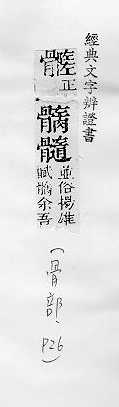 經典文字辨證書
正
髓
並俗揚雄
賦余吾
(骨部, P26)